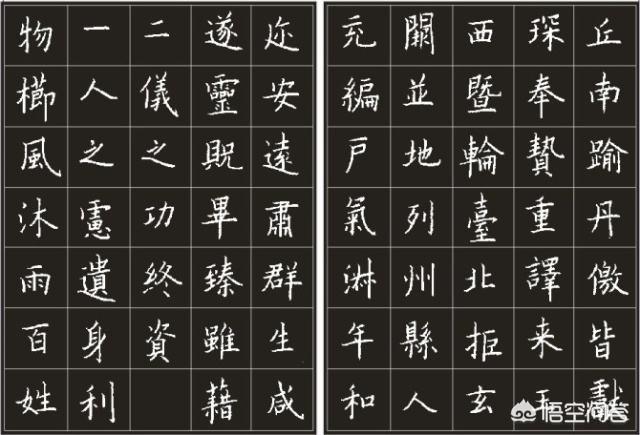 丘南踰丹徼皆獻
琛奉贄重譯来王
西暨輪臺北拒玄
闕並地列州縣人
充編戶氣淑年和
迩安遠肅群生咸
遂靈貺畢臻雖藉
二儀之功終資
一人之慮遺身利
物櫛風沐雨百姓
悟空问答